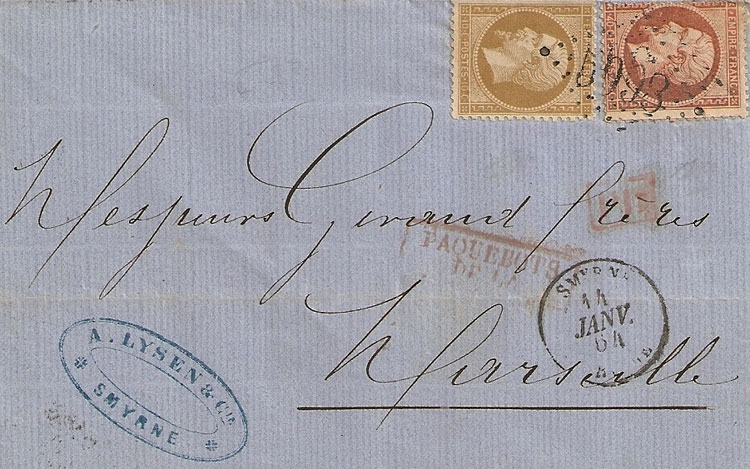 EMPIRE FRANC
POSTES
5098
Messieurs Giraud frères
PD
PAQUEBOTS
DE LA
SMYRNE
14
JANV.
64
Marseille
A. LYSEN & Cie
SMYRNE